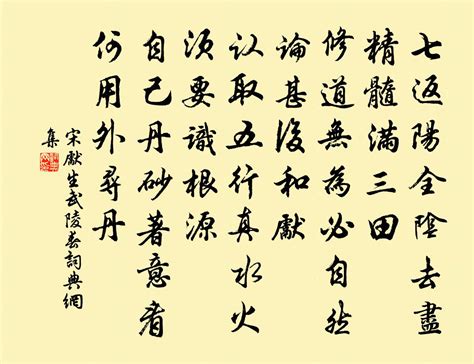 七返陽全陰去盡
精髓滿三田
修道無為必自然
論甚後和獻
認取五行真水火
須要識根源
自己丹砂著意看
何用外尋丹
宋獻生武陵春詞典網
集